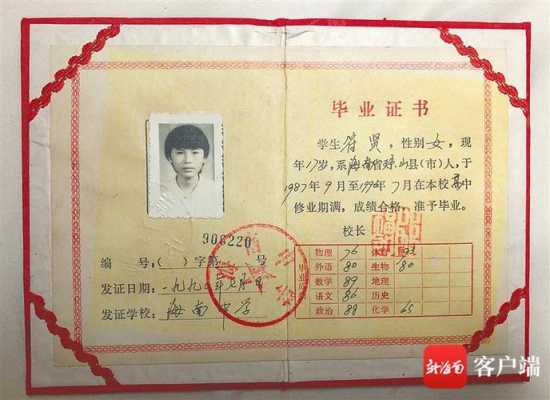 毕业证书
学生符贤，性别女，现
年17岁，系海南省琼山县(市)人，于
1987年9月至1990年7月在本校高中
修业期满，成绩合格，准予毕业。
校长
908220
编号:( )字第 号
发证日期:一九九〇年七月 日
发证学校:海南中学
毕业成绩
物理 76 体育
外语 80 生物 80
数学 89 地理
语文 86 历史
政治 88 化学 65
新海南 客户端